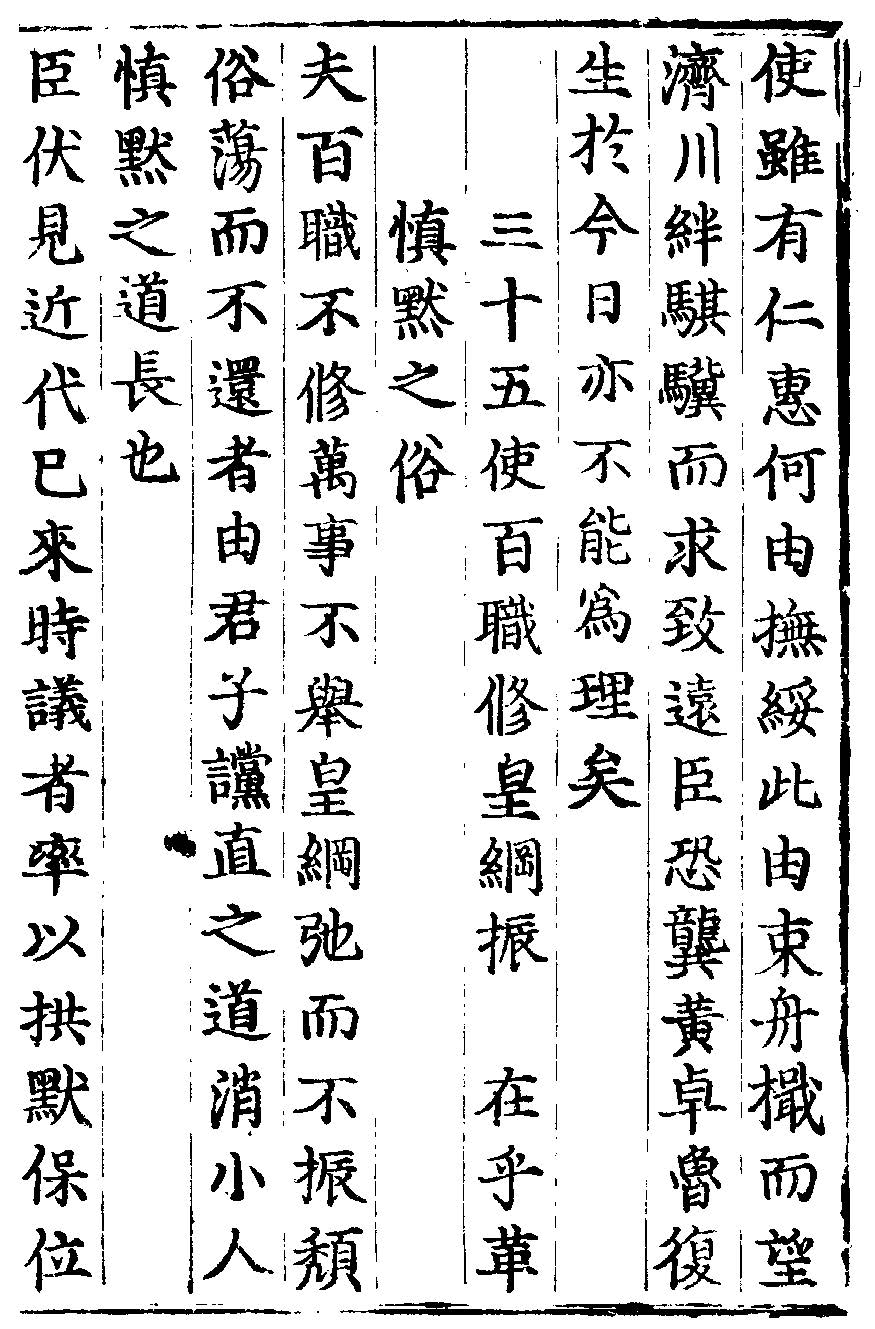 使雖有仁惠何由撫綏此由束舟檝而望
濟川絆騏驥而求致遠臣恐龔黃卓魯復
生於今日亦不能爲理矣
三十五使百職修皇綱振　在乎革
慎黙之俗
夫百職不修萬事不舉皇綱弛而不振頹
俗蕩而不還者由君子讜直之道消小人
慎黙之道長也
臣伏見近代已來時議者率以拱默保位